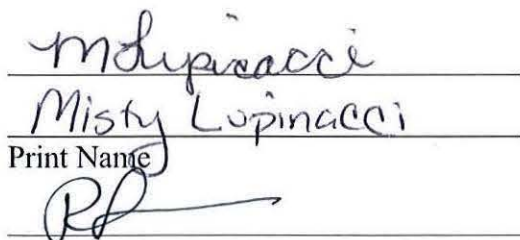 MLupinacci
Misty Lupinacci
Print Name